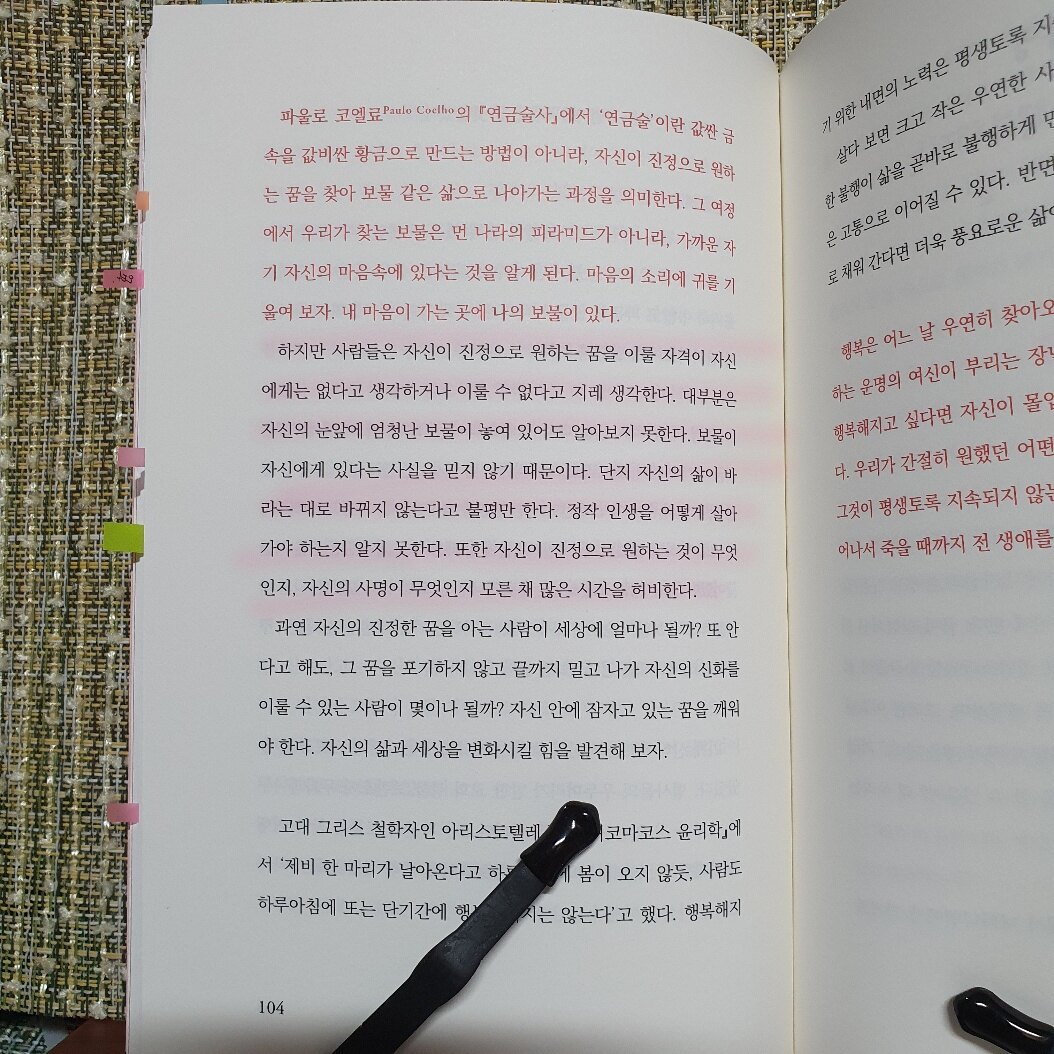 파울로 코엘료Paulo Coelho의 『연금술사』에서 ‘연금술’이란 값싼 금
속을 값비싼 황금으로 만드는 방법이 아니라, 자신이 진정으로 원하
는 꿈을 찾아 보물 같은 삶으로 나아가는 과정을 의미한다. 그 여정
에서 우리가 찾는 보물은 먼 나라의 피라미드가 아니라, 가까운 자
기 자신의 마음속에 있다는 것을 알게 된다. 마음의 소리에 귀를 기
울여 보자. 내 마음이 가는 곳에 나의 보물이 있다.
하지만 사람들은 자신이 진정으로 원하는 꿈을 이룰 자격이 자신
에게는 없다고 생각하거나 이룰 수 없다고 지레 생각한다. 대부분은
자신의 눈앞에 엄청난 보물이 놓여 있어도 알아보지 못한다. 보물이
자신에게 있다는 사실을 믿지 않기 때문이다. 단지 자신의 삶이 바
라는 대로 바뀌지 않는다고 불평만 한다. 정작 인생을 어떻게 살아
가야 하는지 알지 못한다. 또한 자신이 진정으로 원하는 것이 무엇
인지, 자신의 사명이 무엇인지 모른 채 많은 시간을 허비한다.
과연 자신의 진정한 꿈을 아는 사람이 세상에 얼마나 될까? 또 안
다고 해도, 그 꿈을 포기하지 않고 끝까지 밀고 나가 자신의 신화를
이룰 수 있는 사람이 몇이나 될까? 자신 안에 잠자고 있는 꿈을 깨워
야 한다. 자신의 삶과 세상을 변화시킬 힘을 발견해 보자.
고대 그리스 철학자인 아리스토텔레 코마코스 윤리학』에
서 ‘제비 한 마리가 날아온다고 하 봄이 오지 않듯, 사람도
하루아침에 또는 단기간에 지는 않는다’고 했다. 행복해지
104
기 위한 내면의 노력은 평생토록
살다 보면 크고 작은 우연한
한 불행이 삶을 곧바로 불행하게
은 고통으로 이어질 수 있다. 반면
로 채워 간다면 더욱 풍요로운
행복은 어느 날 우연히 찾아오
하는 운명의 여신이 부리는
행복해지고 싶다면 자신이
다. 우리가 간절히 원했던 어떤
그것이 평생토록 지속되지 않는
어나서 죽을 때까지 전 생애를